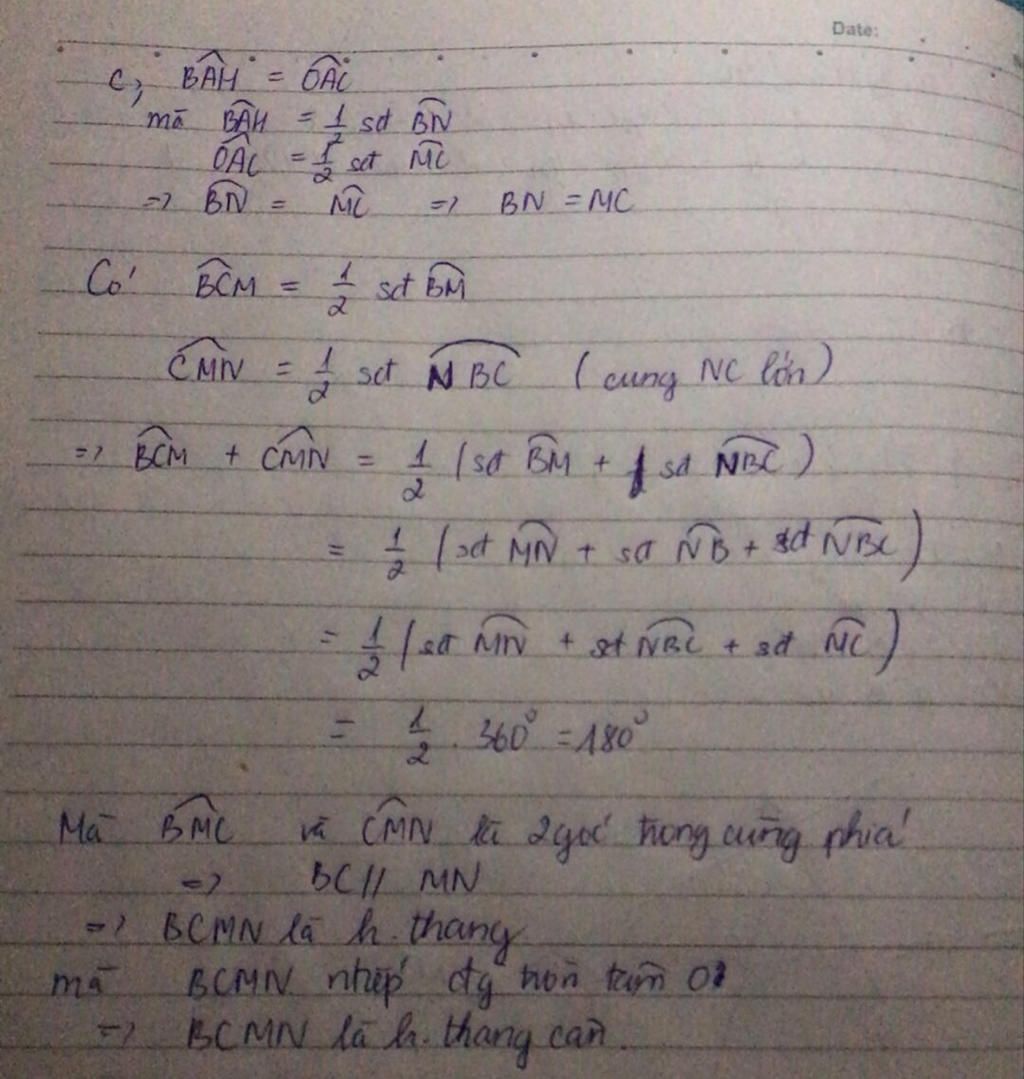 Date:
c, BAH = OAC
mà BAH = 1/2 sđ BN
OAC = 1/2 sđ MC
=> BN = MC => BN = MC
Có BCM = 1/2 sđ BM
CMN = 1/2 sđ NBC (cung NC lớn)
=> BCM + CMN = 1/2 (sđ BM + sđ NBC)
= 1/2 (sđ MN + sđ NB + sđ NBC)
= 1/2 (sđ MN + sđ NBC + sđ NC)
= 1/2 . 360° = 180°
Mà BMC và CMN là 2 góc trong cùng phía
=> BC // MN
=> BCMN là h. thang
mà BCMN nhếp đg tròn tâm O
=> BCMN là h. thang cân.